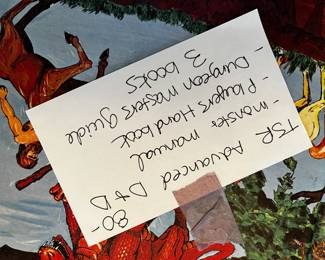 80-
TSR Advanced D+D
- monster manual
- Players Handbook
- Dungeon masters guide
3 books